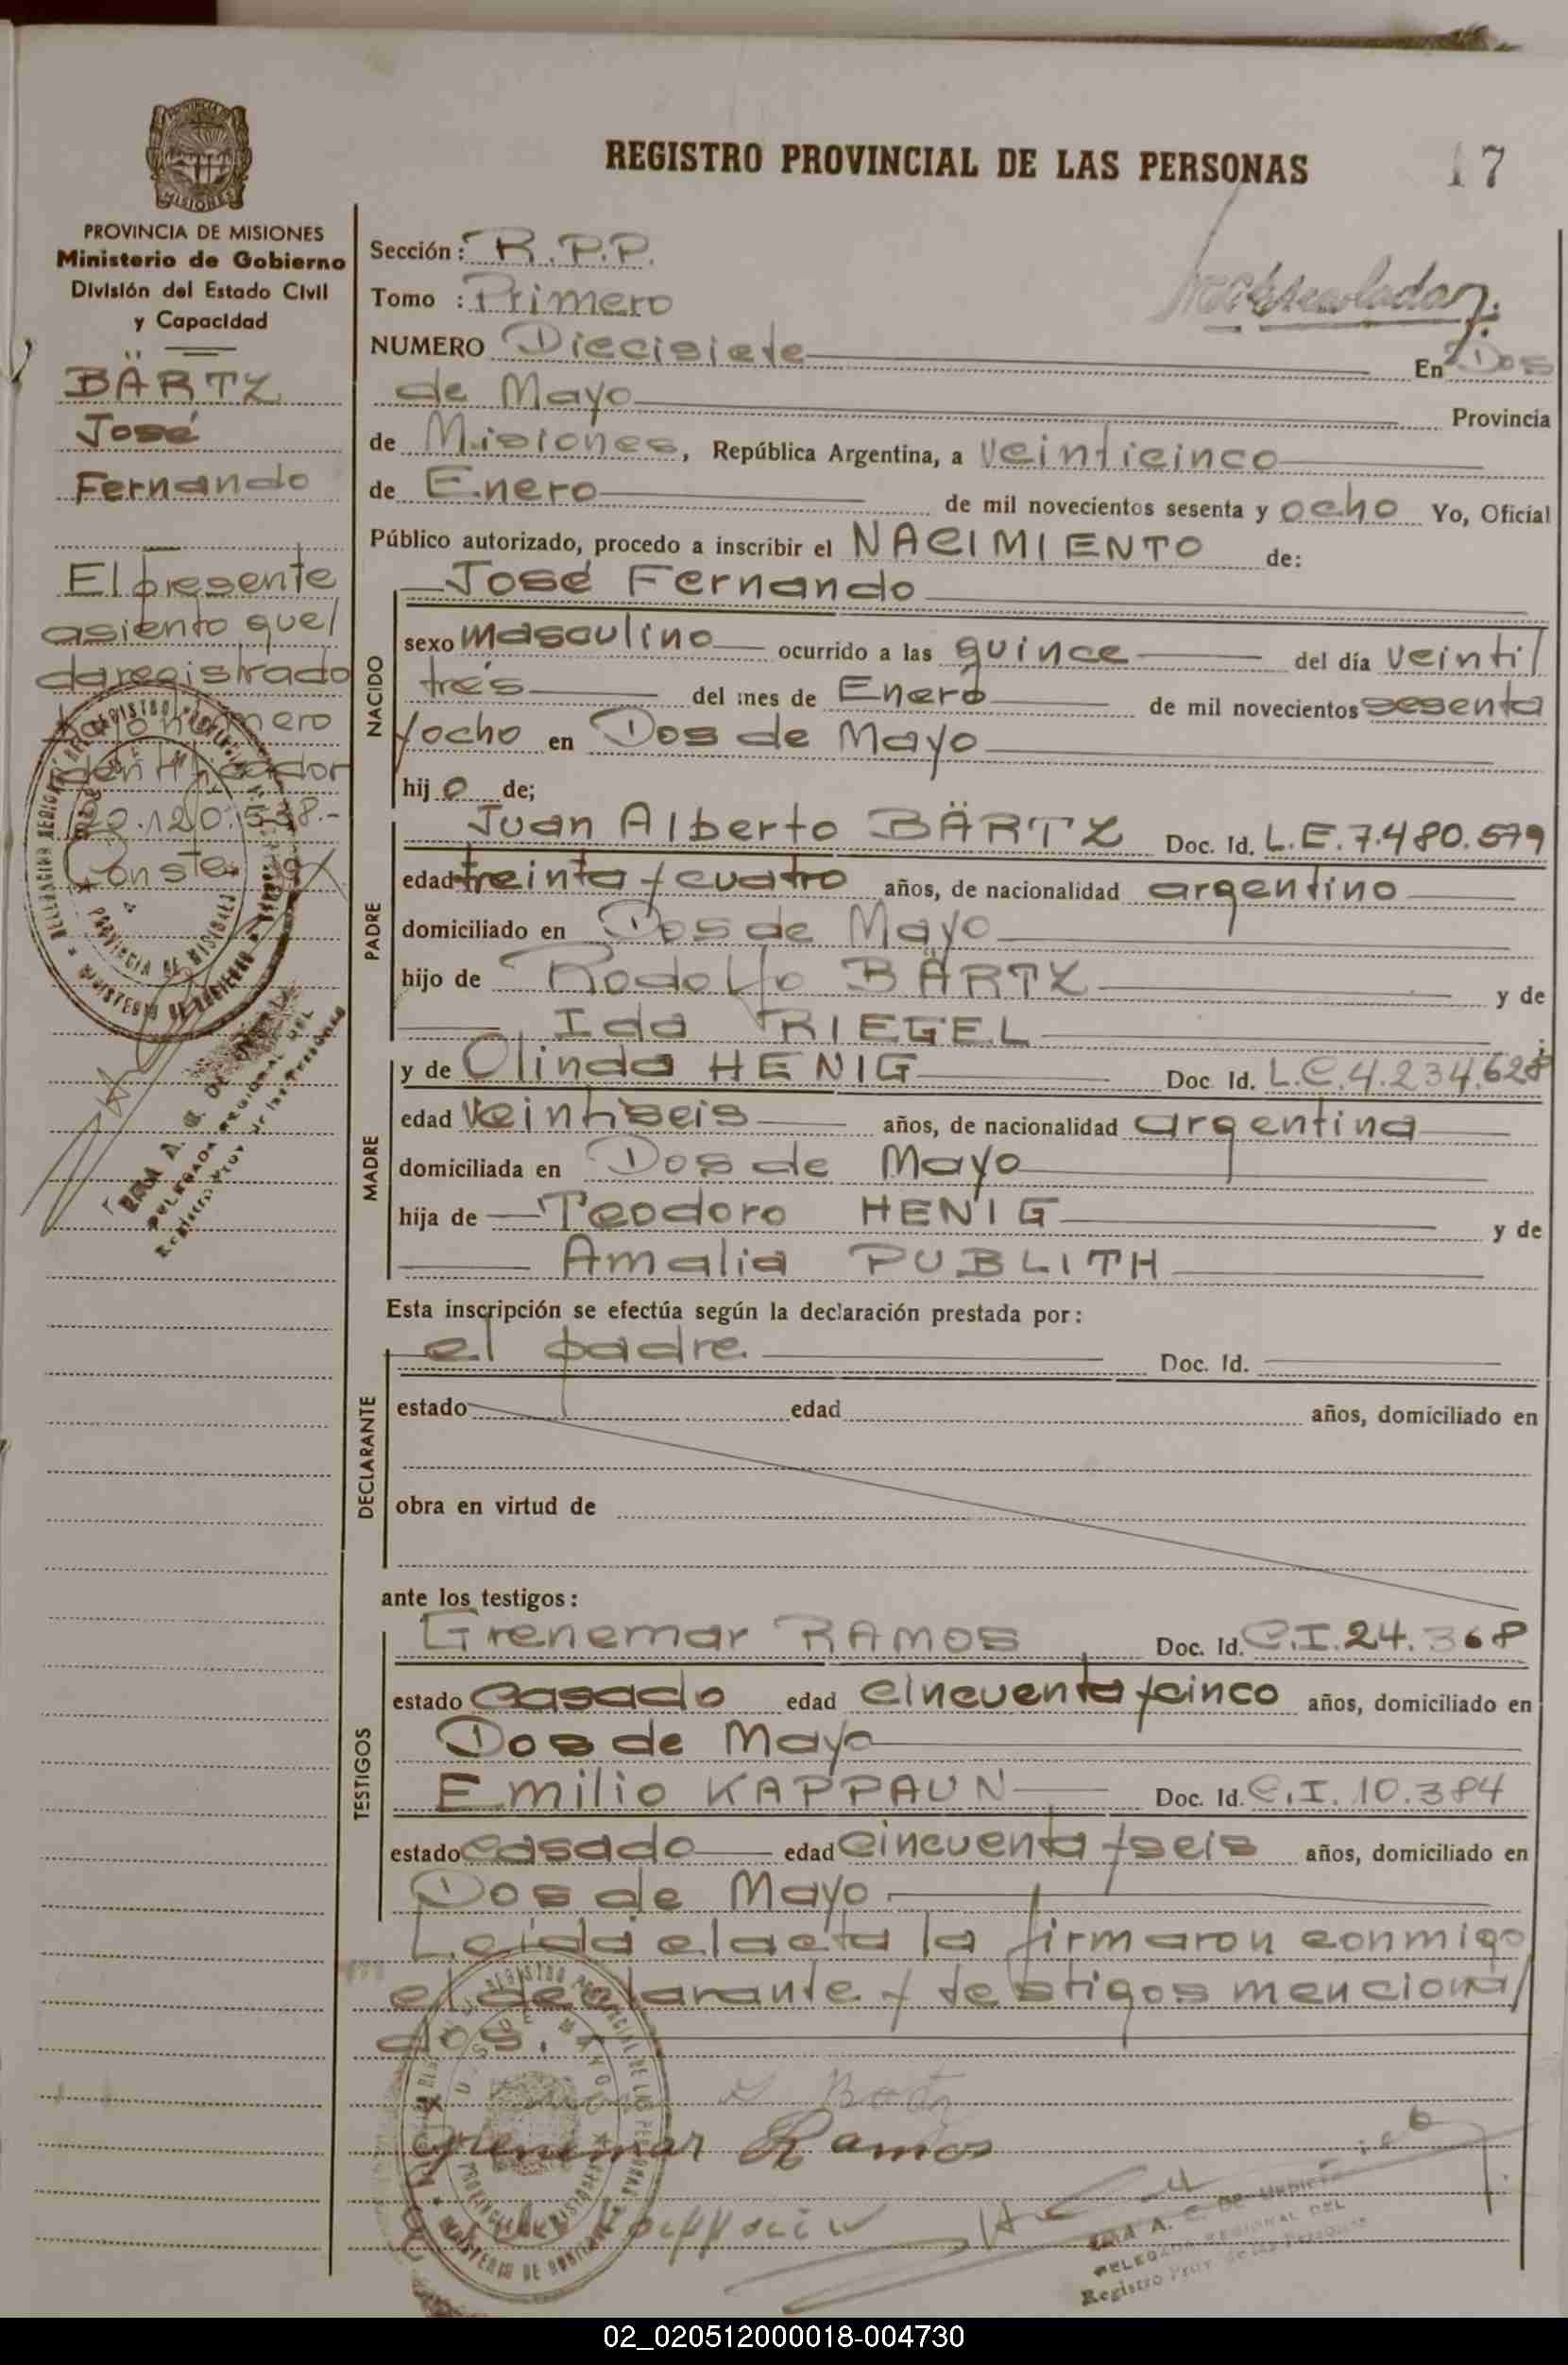 REGISTRO PROVINCIAL DE LAS PERSONAS
17
PROVINCIA DE MISIONES
Ministerio de Gobierno
División del Estado Civil
y Capacidad
BÄRTZ
José
Fernando
El presente
asiento que/
da registrado
bajo número
identificador
20.120.538.-
Conste.
DELEGADA REGIONAL DEL
Registro Prov. de las Personas
Sección: R.P.P.
Tomo : Primero
NUMERO Diecisiete En Dos
de Mayo Provincia
de Misiones, República Argentina, a veinticinco
de Enero de mil novecientos sesenta y ocho Yo, Oficial
Público autorizado, procedo a inscribir el NACIMIENTO de:
NACIDO
José Fernando
sexo masculino ocurrido a las quince del día veinti/
trés del mes de Enero de mil novecientos sesenta
y ocho en Dos de Mayo
hij o de;
PADRE
Juan Alberto BÄRTZ Doc. Id. L.E. 7.480.579
edad treinta y cuatro años, de nacionalidad argentino
domiciliado en Dos de Mayo
hijo de Rodolfo BÄRTZ y de
Ida RIEGEL
MADRE
y de Olinda HENIG Doc. Id. L.C. 4.234.628
edad veintiseis años, de nacionalidad argentina
domiciliada en Dos de Mayo
hija de Teodoro HENIG y de
Amalia PUBLITH
Esta inscripción se efectúa según la declaración prestada por:
DECLARANTE
el padre Doc. Id.
estado edad años, domiciliado en
obra en virtud de
ante los testigos:
TESTIGOS
Grenemar RAMOS Doc. Id. C.I. 24.368
estado casado edad cincuenta y cinco años, domiciliado en
Dos de Mayo
Emilio KAPPAUN Doc. Id. C.I. 10.384
estado casado edad cincuenta y seis años, domiciliado en
Dos de Mayo
Leida el acta la firmaron conmigo
el declarante y testigos menciona/
dos.
Grenemar Ramos
DELEGADA REGIONAL DEL
Registro Prov. de las Personas
02_020512000018-004730